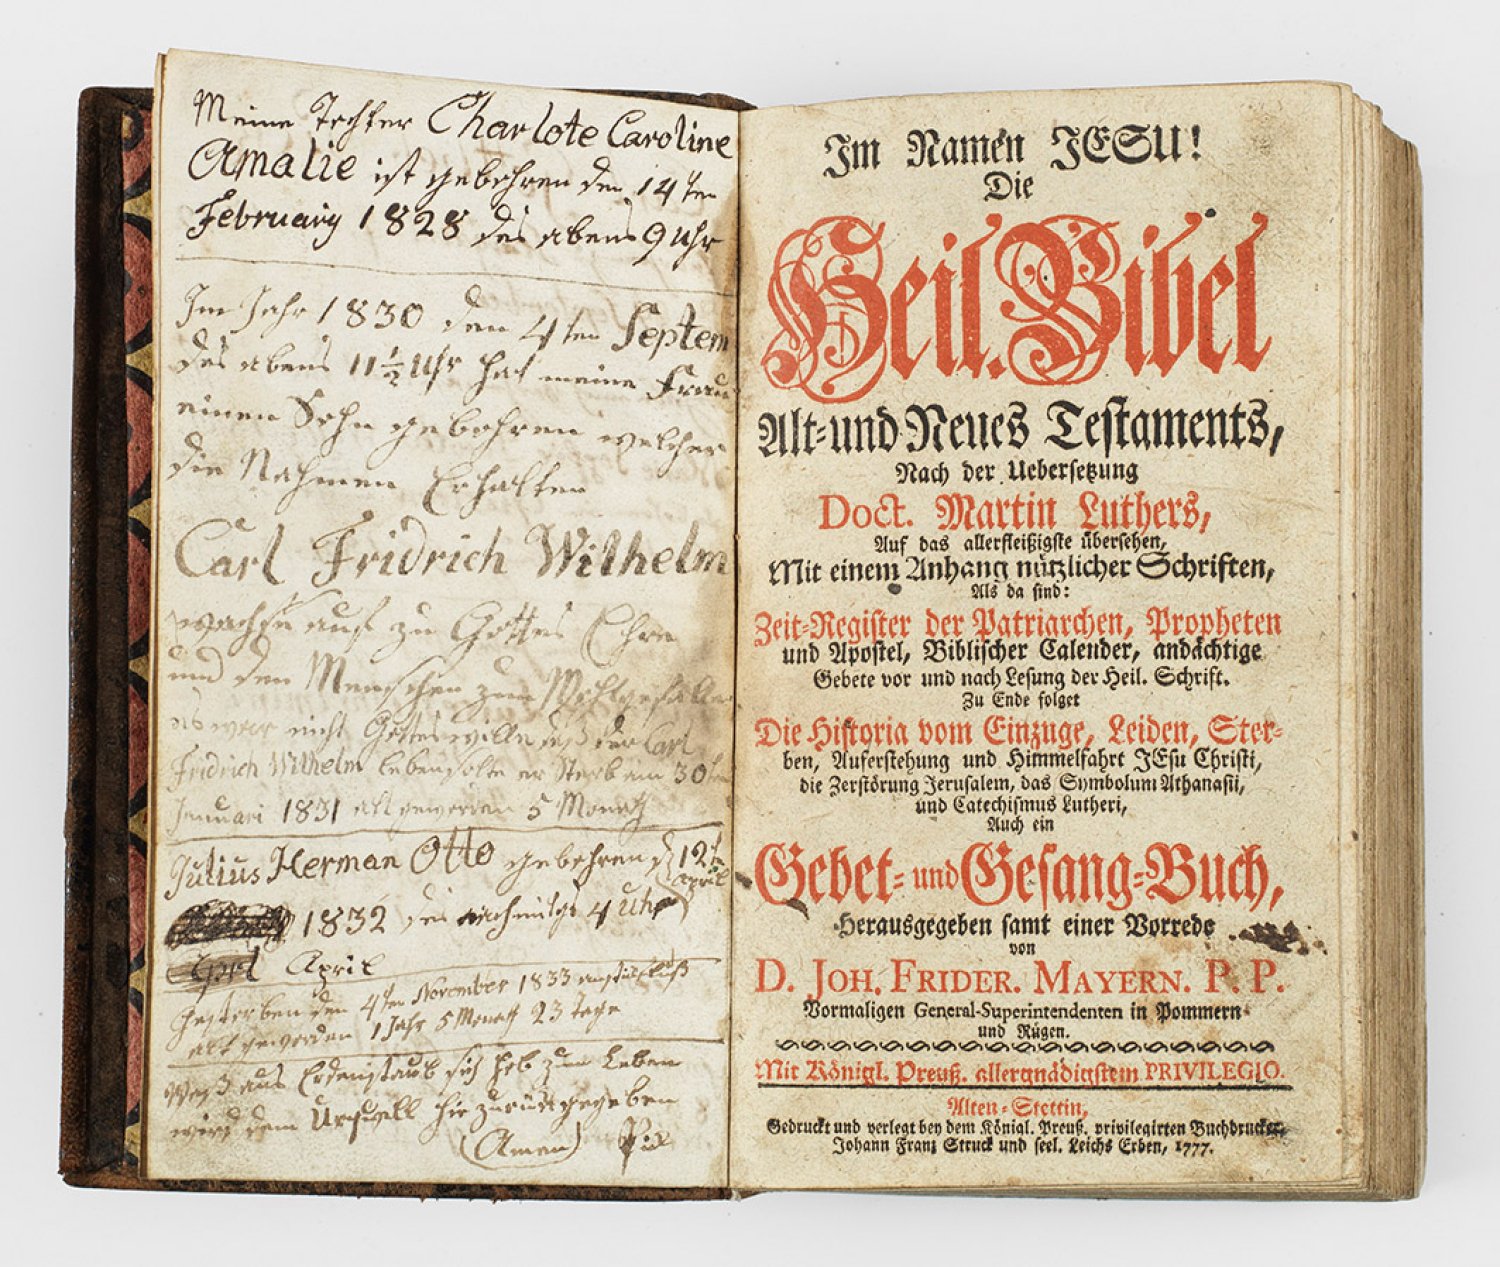 Meine Tochter Charlote Caroline
Amalie ist gebohren den 14ten
February 1828 des abens 9 Uhr
Im Jahr 1830 den 4ten Septem
des abens 11 1/2 Uhr hat meine Frau
einen Sohn gebohren welcher
die Nahmen Erhalten
Carl Fridrich Wilhelm
wachse auf zu Gottes Ehre
und den Menschen zum Wohlgefallen
es war nicht Gottes wille daß der Carl
Fridrich Wilhelm leben solte er Sterb am 30ten
Januari 1831 alt geworden 5 Monath
Julius Herman Otto gebohren d 12te
April
1832 des nachmitgs 4 Uhr
Aprl April
gestorben den 4ten November 1833 am
alt geworden 1 Jahr 5 Monath 23 Tage
Was aus Erdenstaub sich heb zum Leben
wird dem hie zurück gegeben
(Amen)
Im Namen JESU!
Die
Heil. Bibel
Alt- und Neues Testaments,
Nach der Uebersetzung
Doct. Martin Luthers,
Auf das allerfleißigste übersehen,
Mit einem Anhang nützlicher Schriften,
Als da sind:
Zeit-Register der Patriarchen, Propheten
und Apostel, Biblischer Calender, andächtige
Gebete vor und nach Lesung der Heil. Schrift.
Zu Ende folget
Die Historia vom Einzuge, Leiden, Ster-
ben, Auferstehung und Himmelfahrt JEsu Christi,
die Zerstörung Jerusalem, das Symbolum Athanasii,
und Catechismus Lutheri,
Auch ein
Gebet- und Gesang-Buch,
Herausgegeben samt einer Vorrede
von
D. JOH. FRIDER. MAYERN. P. P.
Vormaligen General-Superintendenten in Pommern
und Rügen.
Mit Königl. Preuß. allergnädigstem PRIVILEGIO.
Alten-Stettin,
Gedruckt und verlegt bey dem Königl. Preuß. privilegirten Buchdrucker,
Johann Franz Struck und seel. Leichs Erben, 1777.